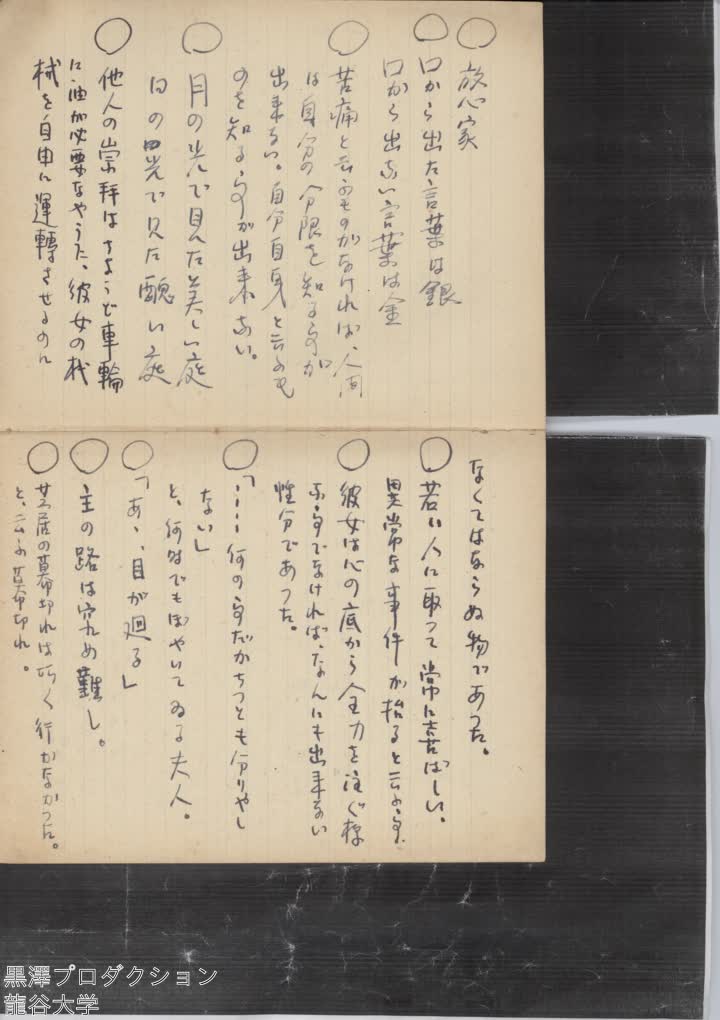 ○ 放心家
○ 口から出た言葉は銀
口から出ない言葉は金
○ 苦痛と云ふものがなければ、人間
は自分の分限を知る事が
出来ない。自分自身と云ふも
のを知る事が出来ない。
○ 月の光で見た美しい庭
日の光で見た醜い庭
○ 他人の崇拝はちょうど車輪
に油が必要なやうに、彼女の機
械を自由に運轉させるのに
なくてはならぬ物であつた。
○ 若い人に取つて常に喜ばしい、
異常な事件が起ると云ふ事
○ 彼女は心の底から全力を注ぐ様
な事でなければ、なんにも出来ない
性分であつた。
○ 「……何の事だかちつとも分りやし
ない」
と、何時でもぼやいてゐる夫人。
○ 「あゝ、目が廻る」
○ 主の路は究め難し。
○ 芝居の幕切れは巧く行かなかつた。
と、云ふ幕切れ。
黒澤プロダクション
龍谷大学